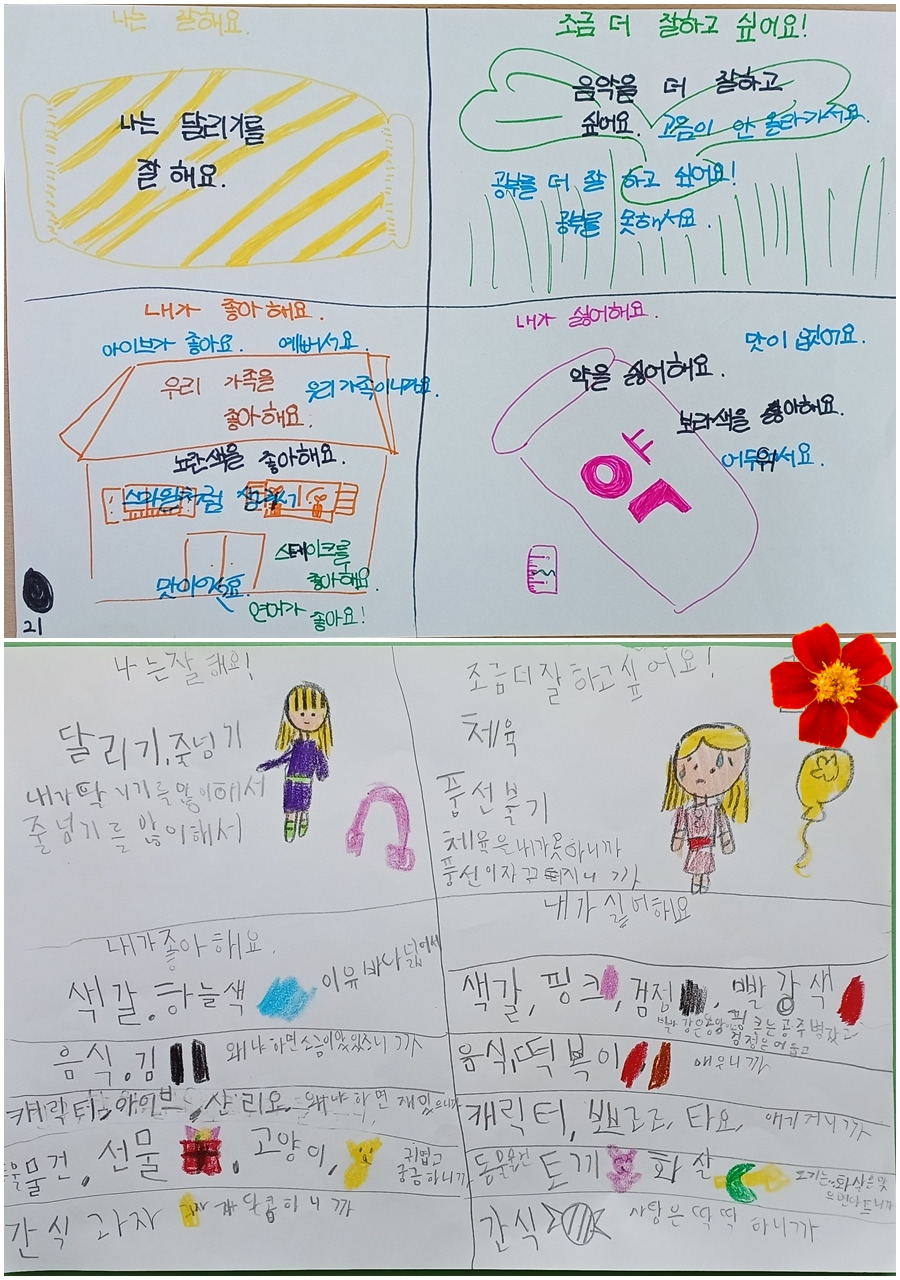 나는 잘해요.
나는 달리기를
잘해요.
조금 더 잘하고 싶어요!
음악을 더 잘하고
싶어요. 고음이 안 올라가서요.
공부를 더 잘 하고 싶어요!
공부를 못해서요.
내가 좋아해요.
아이브가 좋아요. 예뻐서요.
우리 가족을 우리가족이니까요.
좋아해요.
노란색을 좋아해요.
스마일처럼 생겨서
스테이크를
좋아해요
맛이있어요.
연어가 좋아요!
21
내가 싫어해요.
맛이 없어요.
약을 싫어해요.
보라색을 싫어해요.
어두워서요.
약
나는잘해요!
달리기,줄넘기
내가 달리기를 많이해서
줄넘기를 많이해서
조금더잘하고싶어요!
체육
풍선불기
체육은내가못하니까
풍선이자꾸터지니까
내가좋아해요.
색갈.하늘색 이유 바다
음식.김 왜냐하면소금이맛있으니까
캐릭터,아이브,산리오 왜냐하면 재밌으니까
물건,선물,고양이, 귀엽고
궁금하니까
간식 과자 달콤하니까
내가싫어해요
색갈,핑크,검정,빨강색
핑크는공주병같고
검정은어둡고
음식,떡볶이 매우니까
캐릭터,뽀로로,타요, 애기거니까
동물물건 토끼 화살
간식 사탕은 딱딱하니까